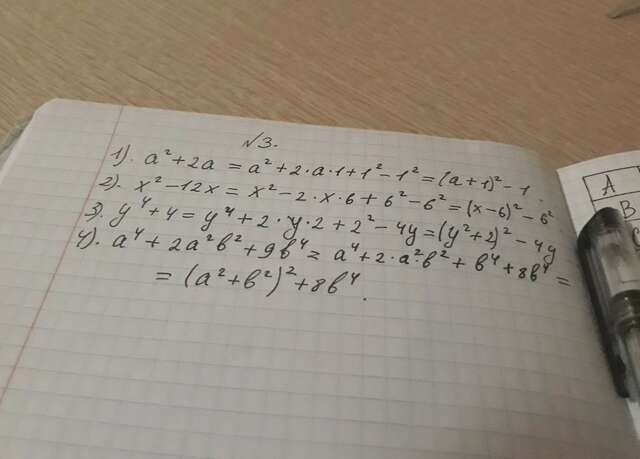 №3.
1). a² + 2a = a² + 2·a·1 + 1² - 1² = (a+1)² - 1.
2). x² - 12x = x² - 2·x·6 + 6² - 6² = (x-6)² - 6²
3). y⁴ + 4 = y⁴ + 2·y·2 + 2² - 4y = (y²+2)² - 4y
4). a⁴ + 2a²b² + 9b⁴ = a⁴ + 2·a²·b² + b⁴ + 8b⁴ =
= (a² + b²)² + 8b⁴.
A
B